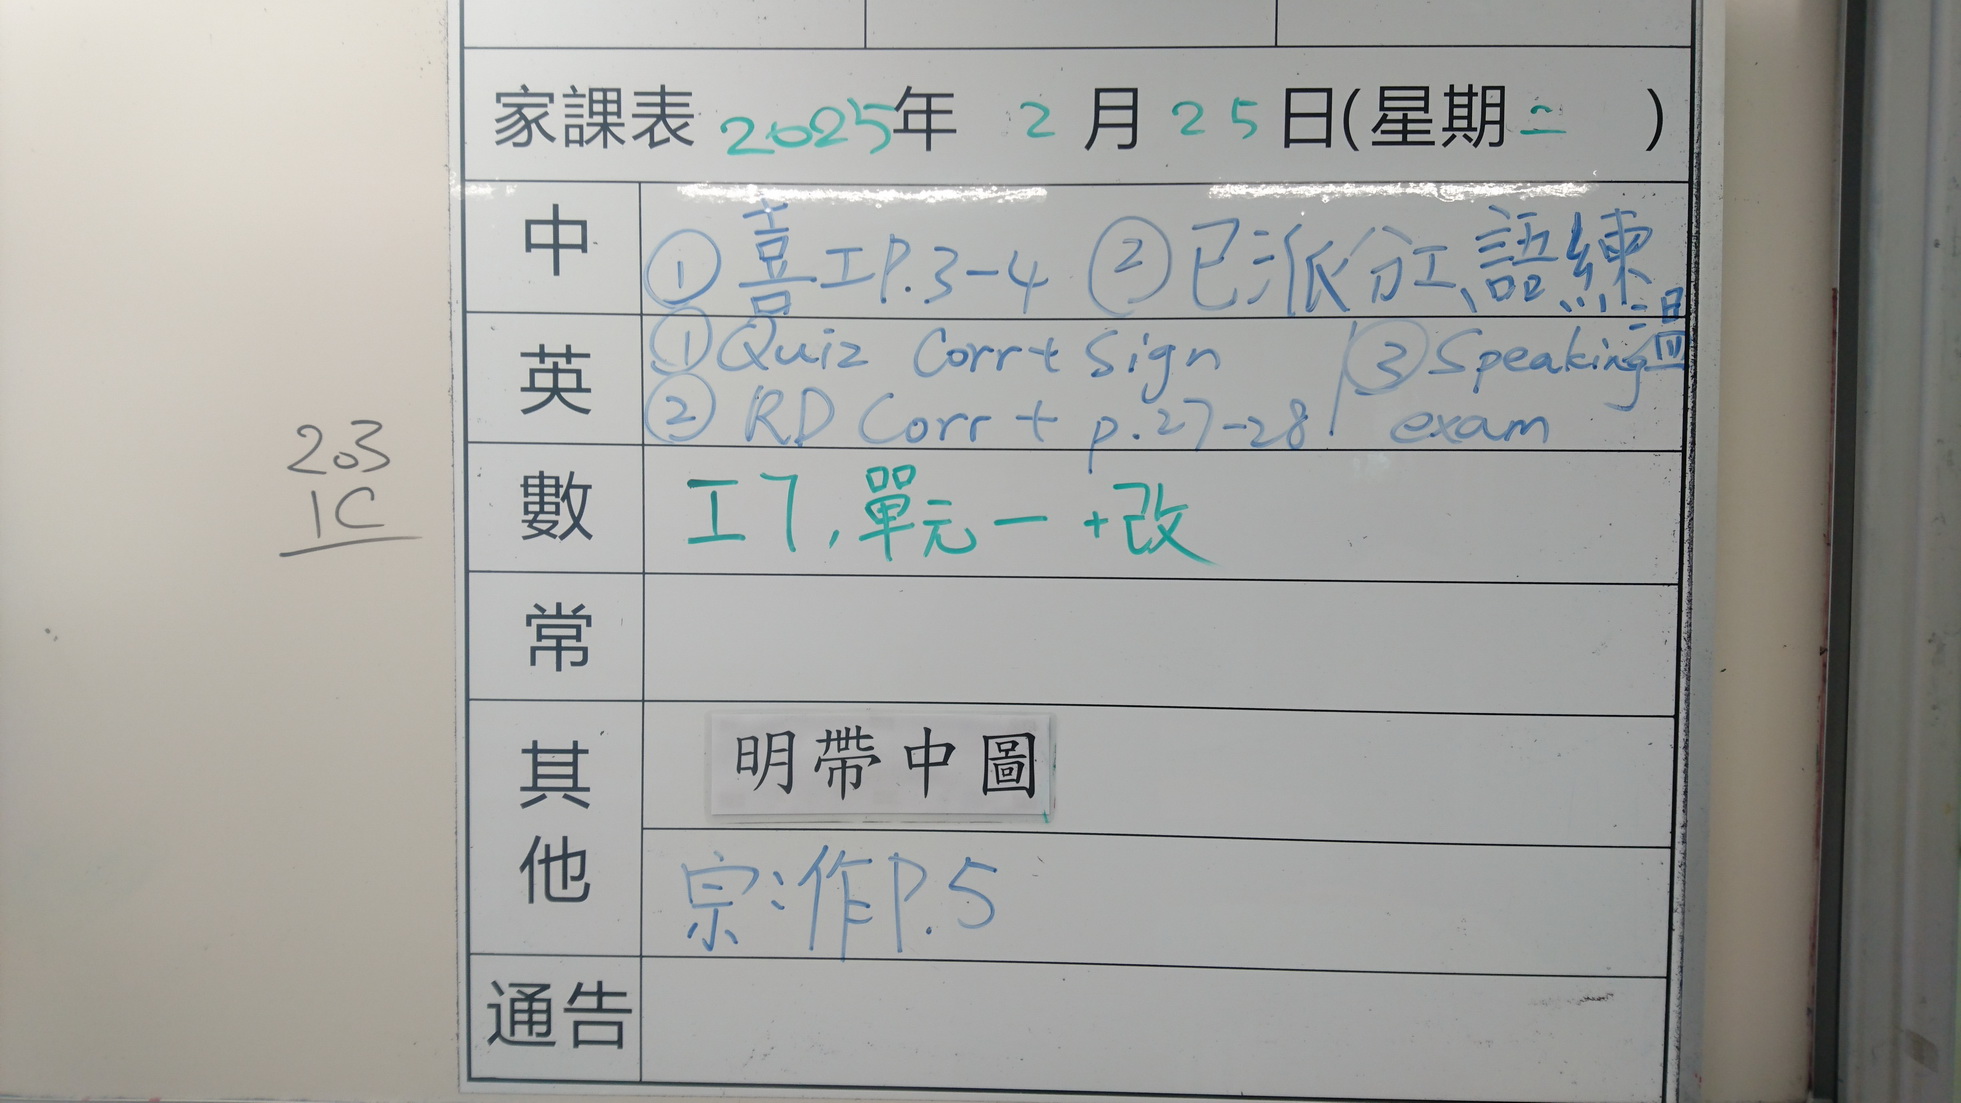 家課表 2025年 2月25日(星期二 )
中 ①喜工P.3-4 ②已派分工、語練
溫
英 ①Quiz Corr + Sign ③Speaking
②RD Corr + p.27-28 exam
數 工7, 單元一 +改
常
其他 明帶中圖
宗:作P.5
通告
203
1C